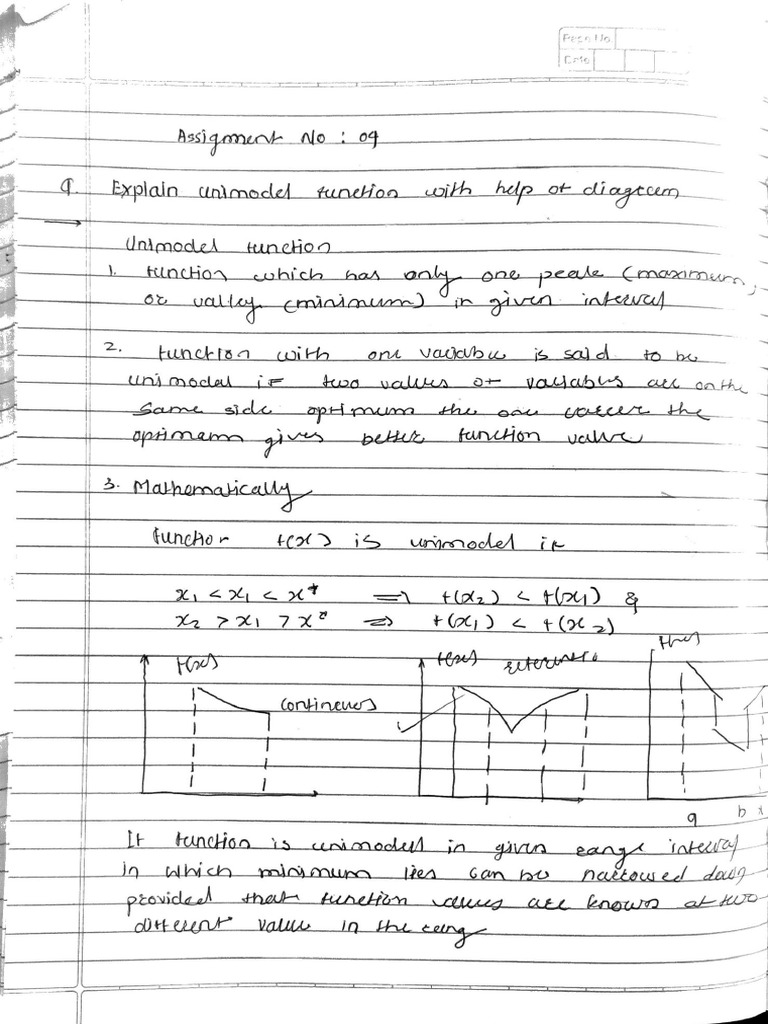 Page No
Date
Assignment No : 09
q. Explain unimodel function with help of diagram
Unimodel function
1. function which has only one peak (maximum,
or valley (minimum) in given interval
2. function with one variable is said to be
unimodal if two values of variables are on the
same side optimum the one the
optimum gives better function value
3. Mathematically
function f(x) is unimodel if
x₁ < x₁ < x* ⇒ f(x₂) < f(x₁) &
x₂ > x₁ > x* ⇒ f(x₁) < f(x₂)
f(x) f(x) f(x)
continues
a b x
If function is unimodel in given range interval
in which minimum lies can be narrowed down
provided that function values are known at two
different value in the rang